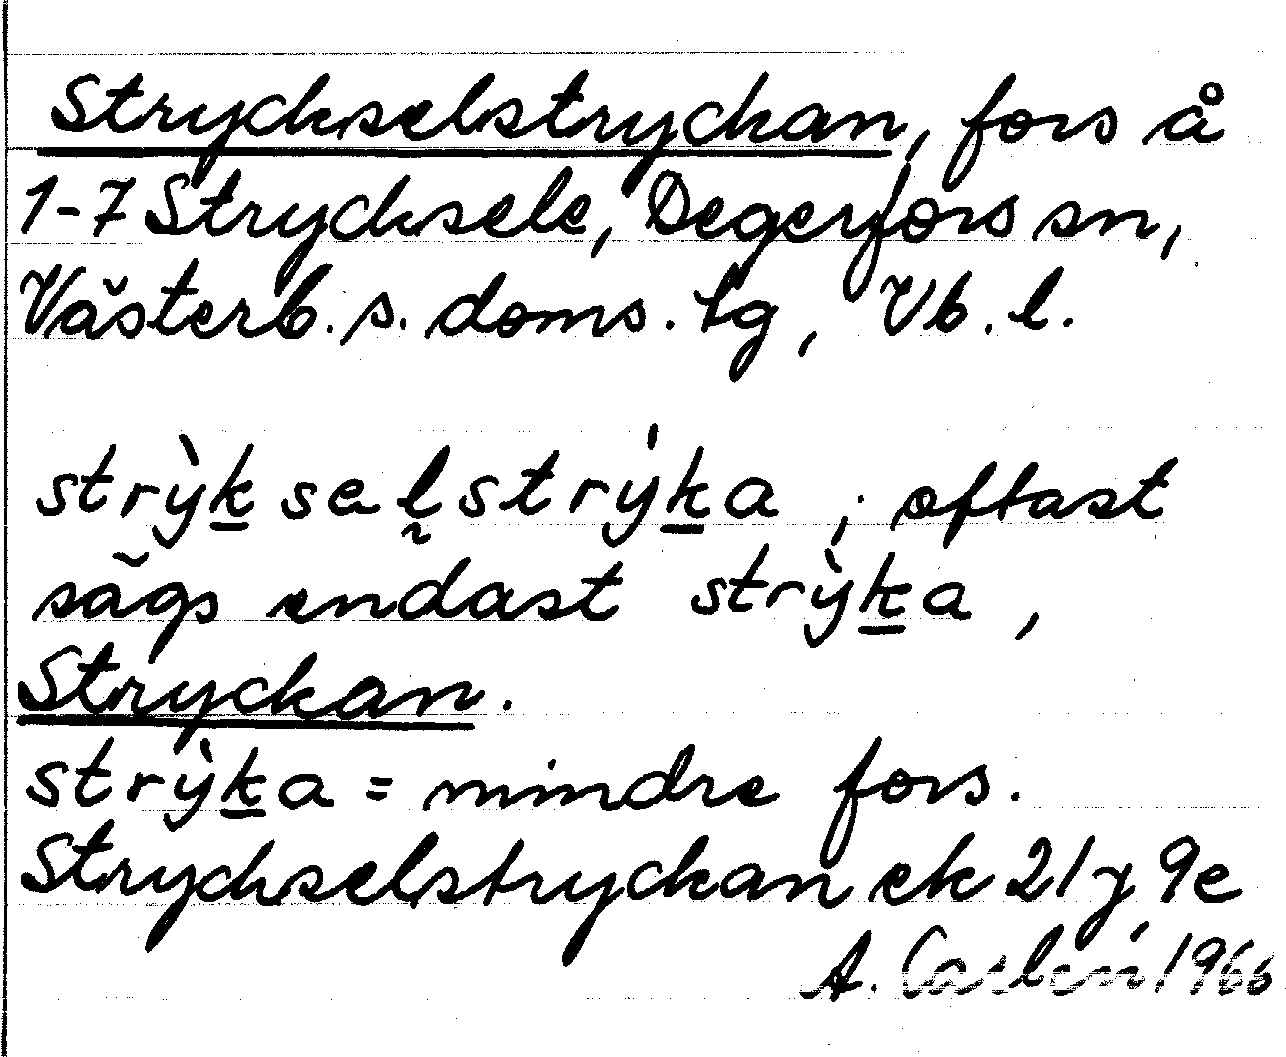 Styckselstryckan, fors å
1-7 Strycksele, Degerfors sn,
Västerb. s. doms. tg, Vb. l.
strỳk̲ sel̰strýk̲a ; oftast
sägs endast strỳk̲a,
Stryckan.
strỳk̲a = mindre fors.
Styckselstryckan ek 21 j 9e
A. 1966